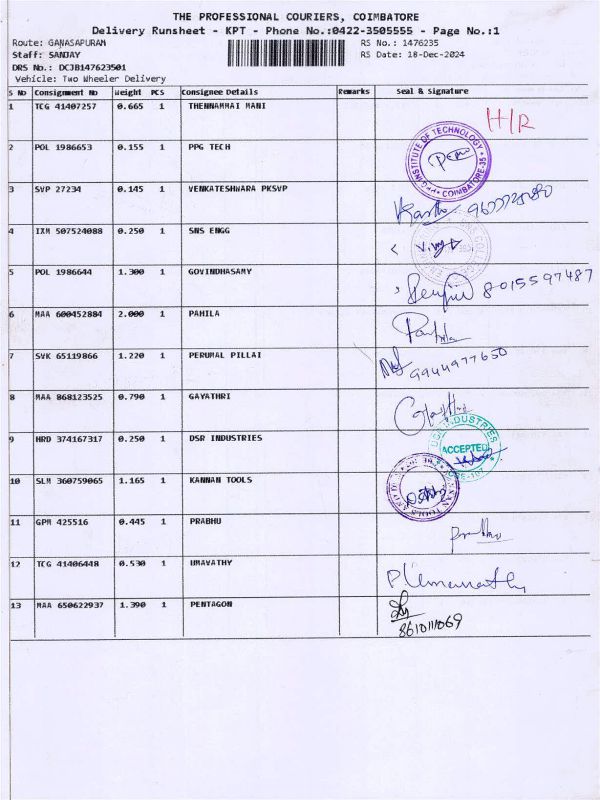 THE PROFESSIONAL COURIERS, COIMBATORE
Delivery Runsheet - KPT - Phone No.:0422-3505555 - Page No.:1
Route: GANASAPURAM
RS No.: 1476235
Staff: SANJAY
RS Date: 18-Dec-2024
DRS No.: DCJB147623501
Vehicle: Two Wheeler Delivery
S No Consignment No Weight PCS Consignee Details Remarks Seal & Signature
1 TCG 41407257 0.665 1 THENNAMMAI MANI H/R
2 POL 1986653 0.155 1 PPG TECH
PPG INSTITUTE OF TECHNOLOGY COIMBATORE-35
3 SVP 27234 0.145 1 VENKATESHWARA PKSVP
4 IXM 507524088 0.250 1 SNS ENGG
5 POL 1986644 1.300 1 GOVINDHASAMY 8015597487
6 MAA 600452884 2.000 1 PAHILA
7 SVK 65119866 1.220 1 PERUMAL PILLAI 9944977650
8 MAA 868123525 0.790 1 GAYATHRI
9 HRD 374167317 0.250 1 DSR INDUSTRIES
INDUSTRIES
ACCEPTED
10 SLM 360759065 1.165 1 KANNAN TOOLS
11 GPM 425516 0.445 1 PRABHU
12 TCG 41406448 0.530 1 UMAVATHY
13 MAA 650622937 1.390 1 PENTAGON
8610111069